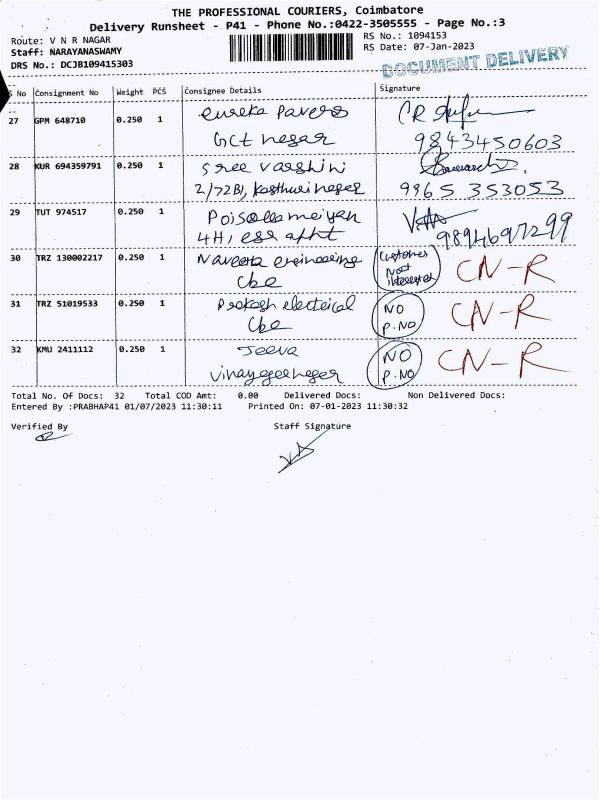 THE PROFESSIONAL COURIERS, Coimbatore
Delivery Runsheet - P41 - Phone No.:0422-3505555 - Page No.:3
Route: V N R NAGAR
RS No.: 1094153
Staff: NARAYANASWAMY
RS Date: 07-Jan-2023
DRS No.: DCJB109415303
DOCUMENT DELIVERY
No Consignment No Weight PCS Consignee Details Signature
27 GPM 648710 0.250 1 eureka Pavers
GCT nagar 9843450603
28 KUR 694359791 0.250 1 Sree varshini
2/72B, Kasthuri nagar 9965 353053
29 TUT 974517 0.250 1
4H, ess aptt 9894697299
30 TRZ 130002217 0.250 1 Naveena engineering Customer Not interested CN-R
Cbe
31 TRZ 51019533 0.250 1 Prakash electrical NO P.NO CN-R
Cbe
32 KMU 2411112 0.250 1 Jeeva NO P.NO CN-R
Vinayagarnagar
Total No. Of Docs: 32 Total COD Amt: 0.00 Delivered Docs: Non Delivered Docs:
Entered By :PRABHAP41 01/07/2023 11:30:11 Printed On: 07-01-2023 11:30:32
Verified By Staff Signature